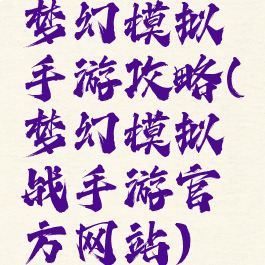 梦幻模拟
手游攻略(
梦幻模拟
战手游官
方网站)